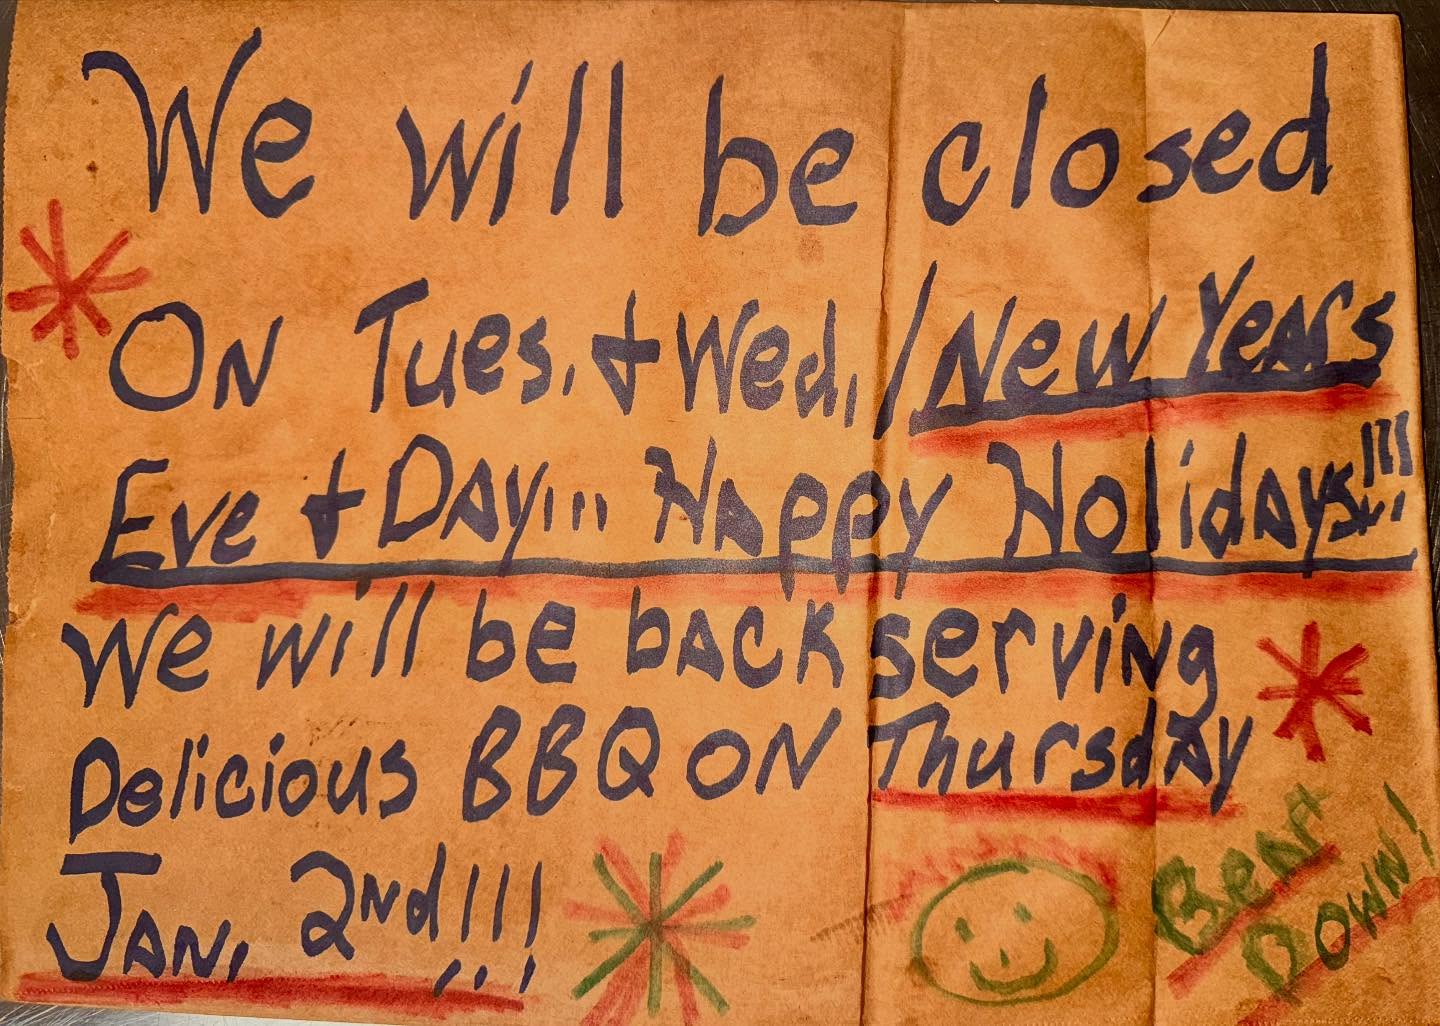 We will be closed
On Tues. & Wed. / New Years
Eve & Day... Happy Holidays!!!
We will be back serving
Delicious BBQ on Thursday
Jan. 2nd!!!
Bear
Down!